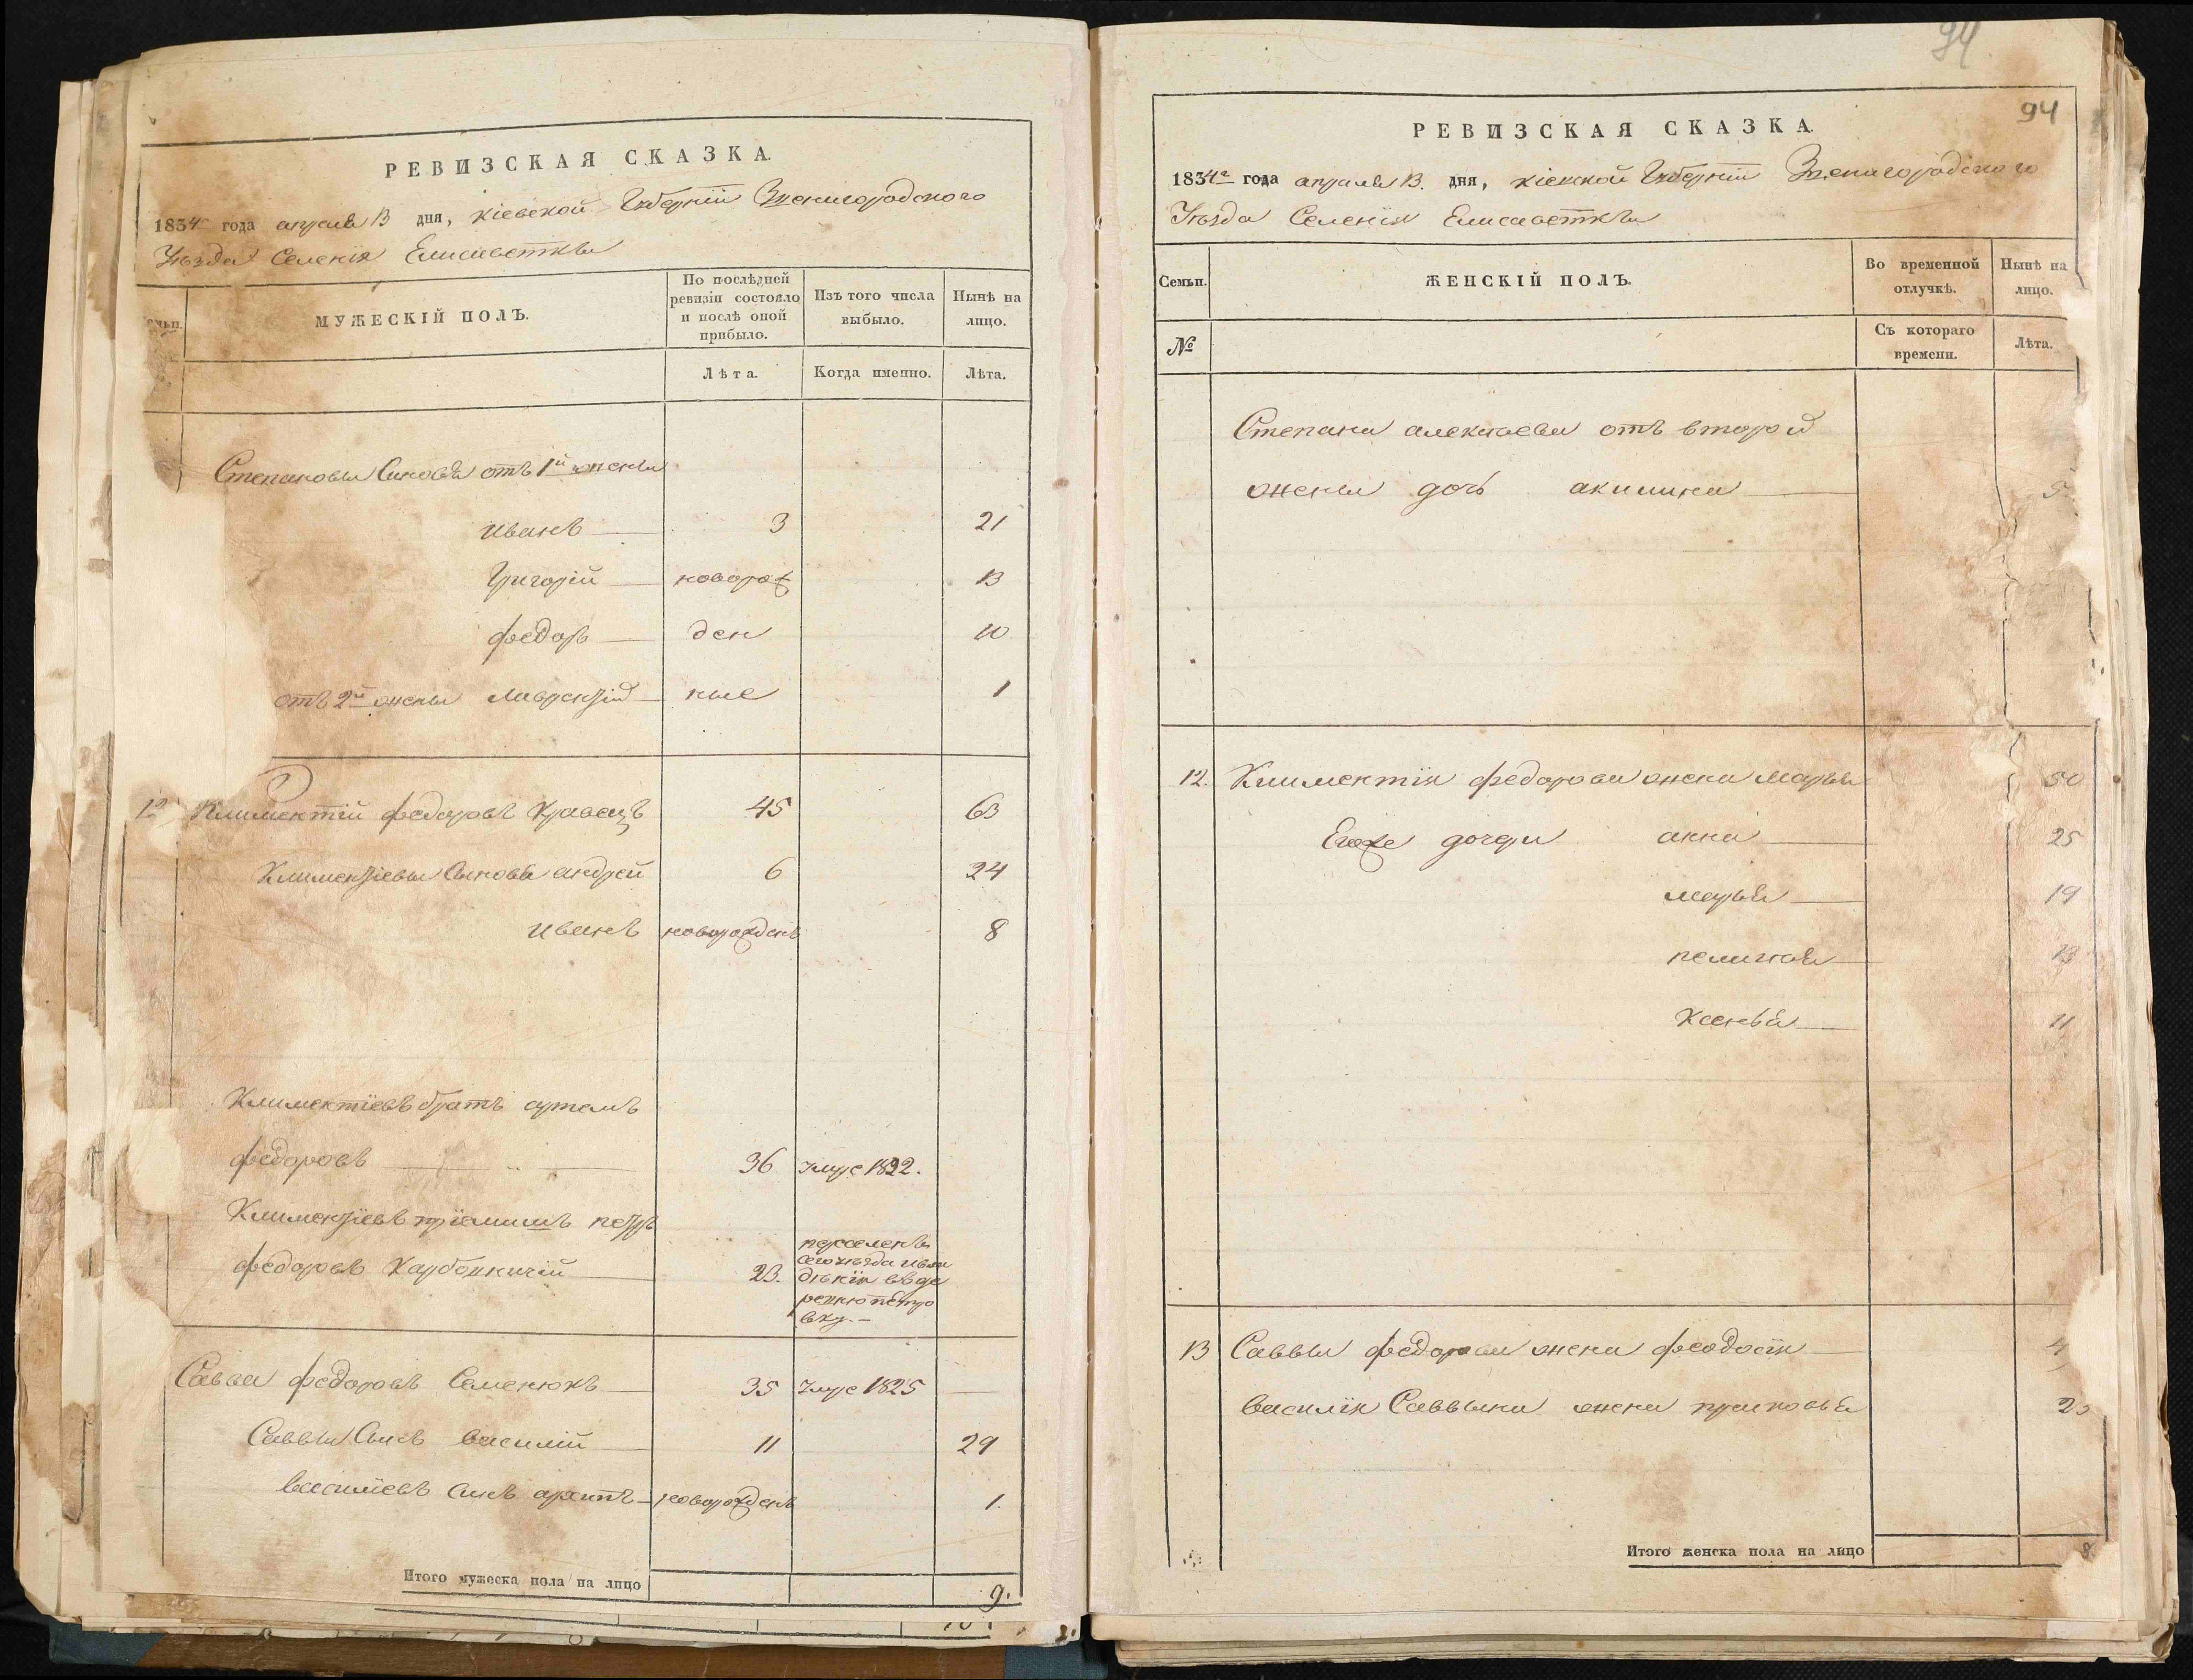 РЕВИЗСКАЯ СКАЗКА.
1834 года апреля 13 дня, Кіевской Губерніи Звенигородского
Уѣзда Селенія Елисаветки
МУЖЕСКІЙ ПОЛЪ.
По послѣдней ревизіи состояло и послѣ оной прибыло.
Изъ того числа выбыло.
Нынѣ на лицо.
Лѣта.
Когда именно.
Лѣта.
Степановы Сыновя отъ 1й жены
иванъ 3 21
Григорій новорож 13
федоръ ден 10
отъ 2й жены лаврентій ные 1
12 Климентій федоровъ Кравецъ 45 63
Климентіевы Сыновя андрей 6 24
иванъ новорожденъ 8
Климентіевъ братъ артемъ
федоровъ 36 умре 1832.
Климентіевъ пріемишъ петръ
федоровъ 23.
переселенъ
сего уѣзда
въ де
ревню петро
вку.
Савва федоровъ Семенюкъ 35 умре 1825
Саввы Сынъ василій 11 29
василіевъ сынъ архипъ новорожденъ 1.
Итого мужеска пола на лицо 9.
94
94
РЕВИЗСКАЯ СКАЗКА.
1834г года апреля 13. дня, Кіевской Губерніи Звенигородского
Уѣзда Селенія Елисаветки
Семьи.
ЖЕНСКІЙ ПОЛЪ.
Во временной отлучкѣ.
Нынѣ на лицо.
№
Съ котораго времени.
Лѣта.
Степана алексѣева отъ второй
жены дочь акилина 5
12. Климентія федорова жена марья 50
Егоже дочери анна 25
марья 19
пелагея 13
Ксенья 11
13 Саввы федорова жена феодосія 4
василія Саввина жена прасковья 2
Итого женска пола на лицо 8.